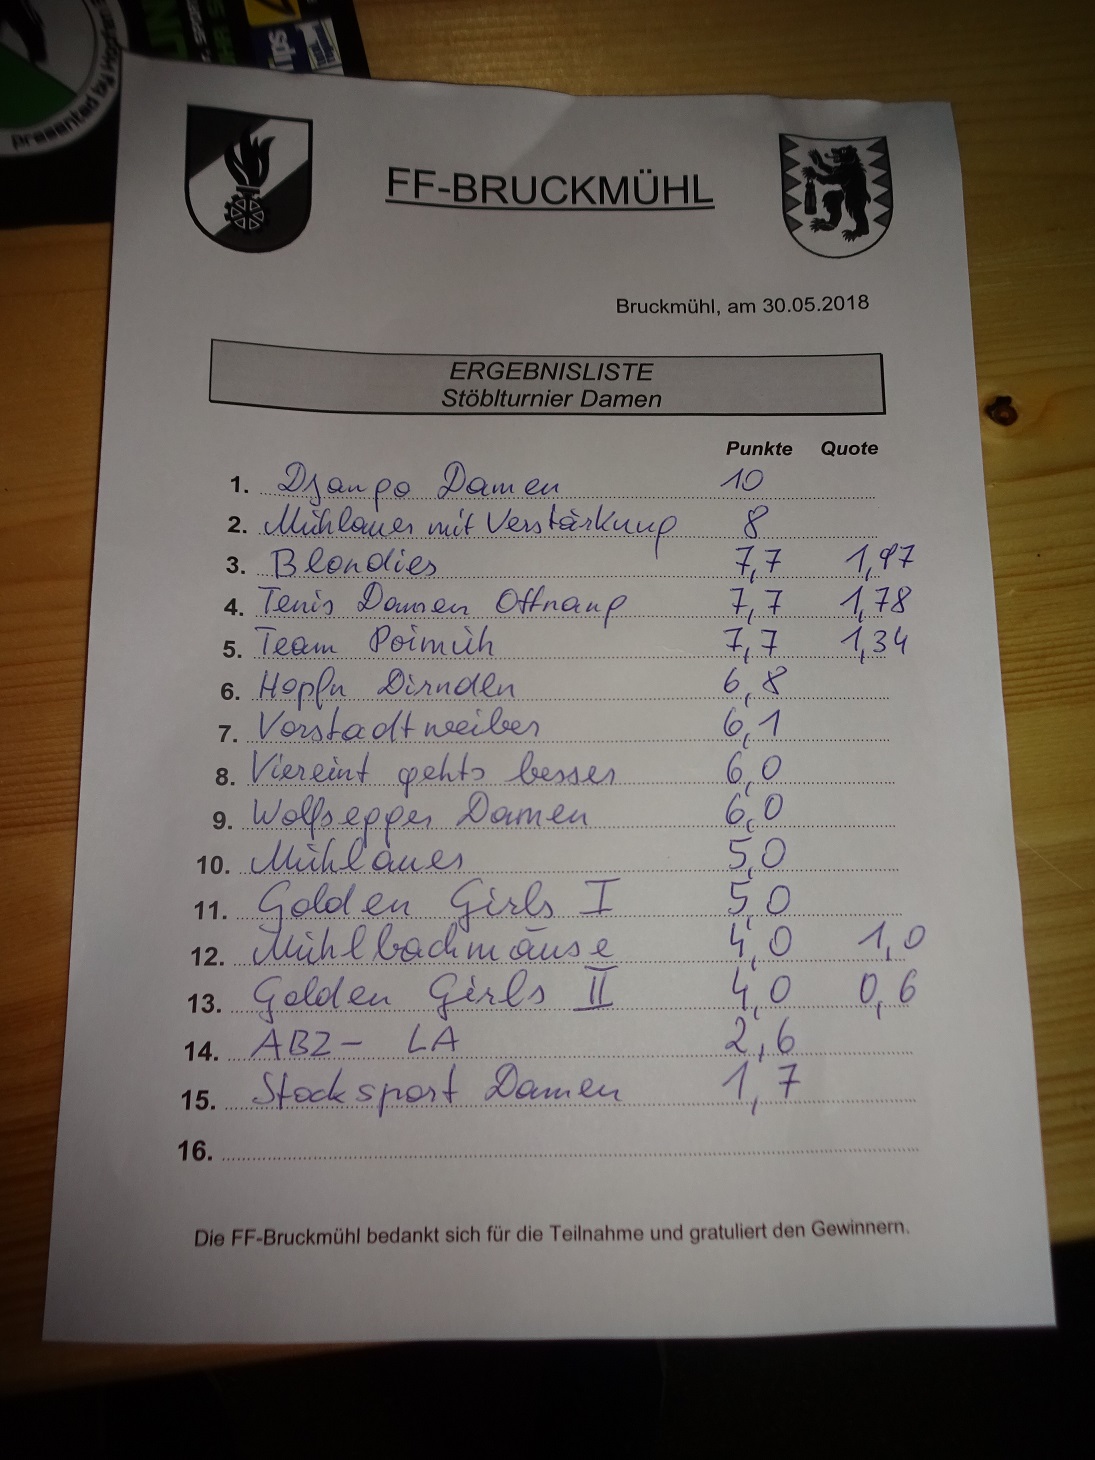 presented by
Tips
FF-BRUCKMÜHL
Bruckmühl, am 30.05.2018
ERGEBNISLISTE
Stöblturnier Damen
Punkte Quote
1. Django Damen 10
2. Mühlauer mit Verstärkung 8
3. Blondies 7,7 1,97
4. Tenis Damen Ottnang 7,7 1,78
5. Team Poimüh 7,7 1,34
6. Hopfn Dirndln 6,8
7. Vorstadtweiber 6,1
8. Viereint gehts besser 6,0
9. Wolfsegger Damen 6,0
10. Mühlauer 5,0
11. Golden Girls I 5,0
12. Mühlbachmäuse 4,0 1,0
13. Golden Girls II 4,0 0,6
14. ABZ- LA 2,6
15. Stocksport Damen 1,7
16.
Die FF-Bruckmühl bedankt sich für die Teilnahme und gratuliert den Gewinnern.